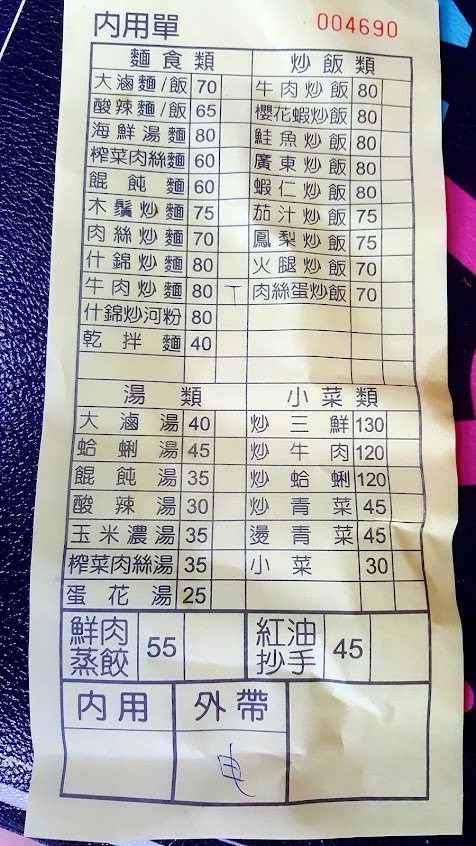 內用單 004690
麵食類 炒飯類
大滷麵/飯 70 牛肉炒飯 80
酸辣麵/飯 65 櫻花蝦炒飯 80
海鮮湯麵 80 鮭魚炒飯 80
榨菜肉絲麵 60 廣東炒飯 80
餛飩麵 60 蝦仁炒飯 80
木鬚炒麵 75 茄汁炒飯 75
肉絲炒麵 70 鳳梨炒飯 75
什錦炒麵 80 火腿炒飯 70
牛肉炒麵 80 肉絲蛋炒飯 70
什錦炒河粉 80
乾拌麵 40
湯類 小菜類
大滷湯 40 炒三鮮 130
蛤蜊湯 45 炒牛肉 120
餛飩湯 35 炒蛤蜊 120
酸辣湯 30 炒青菜 45
玉米濃湯 35 燙青菜 45
榨菜肉絲湯 35 小菜 30
蛋花湯 25
鮮肉蒸餃 55 紅油抄手 45
內用 外帶